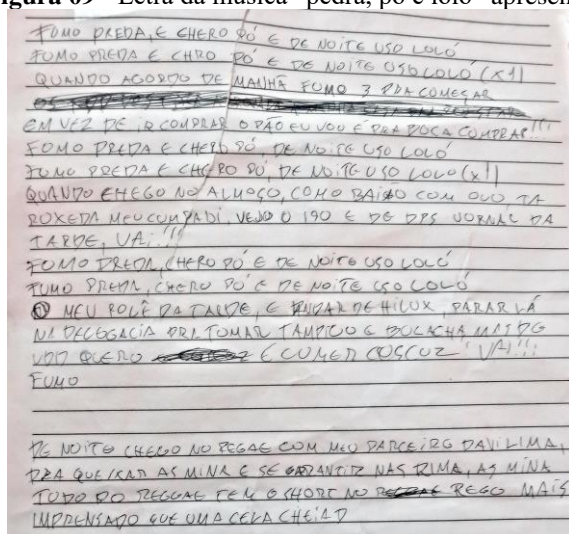 Figura 09 - Letra da música "pedra, pó e loló" apresen
FUMO PREDA, E CHERO PÓ E DE NOITE USO LOLÓ
FUMO PREDA E CHRO PÓ E DE NOITE USO LOLÓ (X1)
QUANDO ACORDO DE MANHÃ FUMO 3 PRA COMEÇAR
EM VEZ DE IR COMPRAR O PÃO EU VOU É PRA BOCA COMPRAR!!!
FUMO PREDA E CHERO PÓ, DE NOITE USO LOLÓ
FUMO PREDA E CHERO PÓ, DE NOITE USO LOLO (X1)
QUANDO CHEGO NO ALMOÇO, COMO BAIÃO COM OVO, TA
ROXEDA MEU CUMPADI, VEJO O 190 E DE DPS JORNAL DA
TARDE, VAI!!!
FUMO PREDA, CHERO PÓ E DE NOITE USO LOLÓ
FUMO PREDA, CHERO PÓ E DE NOITE USO LOLÓ
O MEU ROLÊ DA TARDE, E ANDAR DE HILUX, PARAR LÁ
NA DELEGACIA PRA TOMAR TAMPICO E BOLACHA MAS DE
QUERO É COMER COSCUZ VAI!!!
FUMO
DE NOITE CHEGO NO REGAE COM MEU PARCEIRO DAVI LIMA,
PRA QUEIXAR AS MINA E SE GARANTIR NAS RIMA, AS MINA
TUDO DO REGGAE TEM O SHORT NO REGO MAIS
IMPRENSADO QUE UMA CELA CHEIA